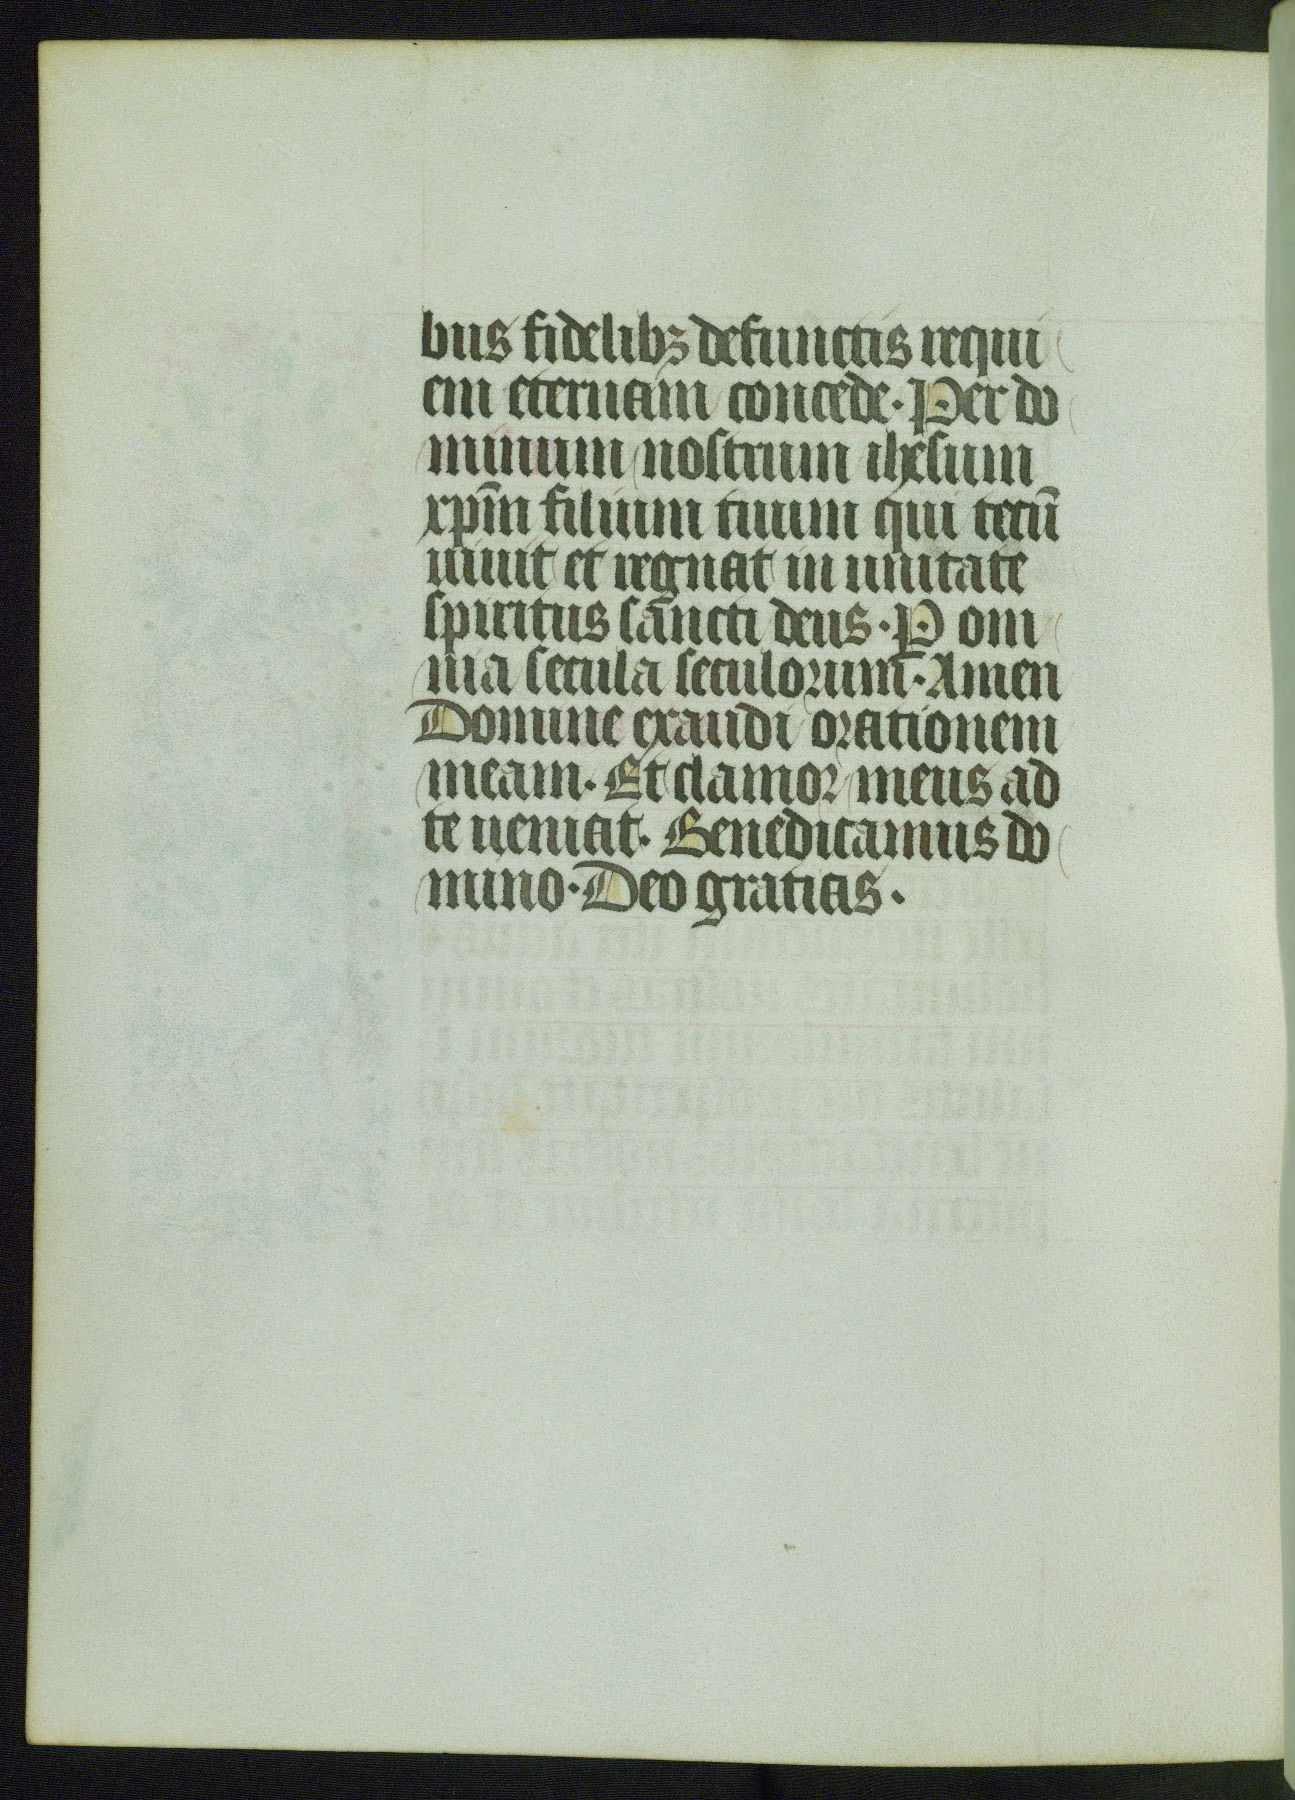 bus fidelibꝫ defunctis requi
em eternam concede. Per do
minum nostrum ihesum
xp̄m filium tuum qui tecū
uiuit et regnat in unitate
spiritus sancti deus. P om
nia secula seculorum. Amen
Domine exaudi orationem
meam. Et clamor meus ad
te ueniat. Benedicamus do
mino. Deo gratias.